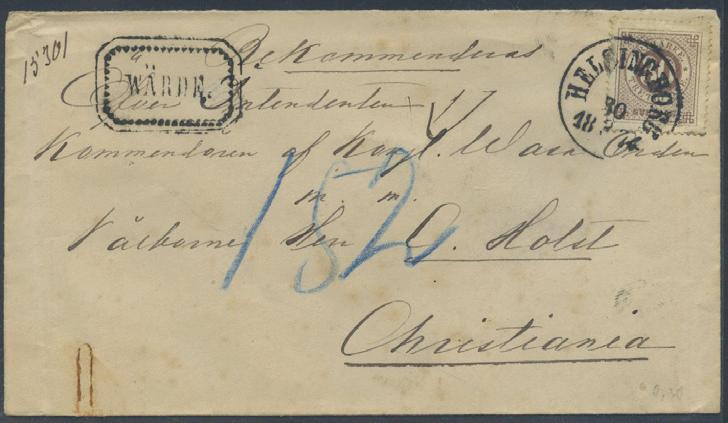 15301
Rekommenderas
WÄRDE.
HELSINGBORG
30
18 74
Öfver Intendenten
Kommendören af Kongl. Wasa Orden
m. m.
Välborne Herr O. Holst
152
Christiania